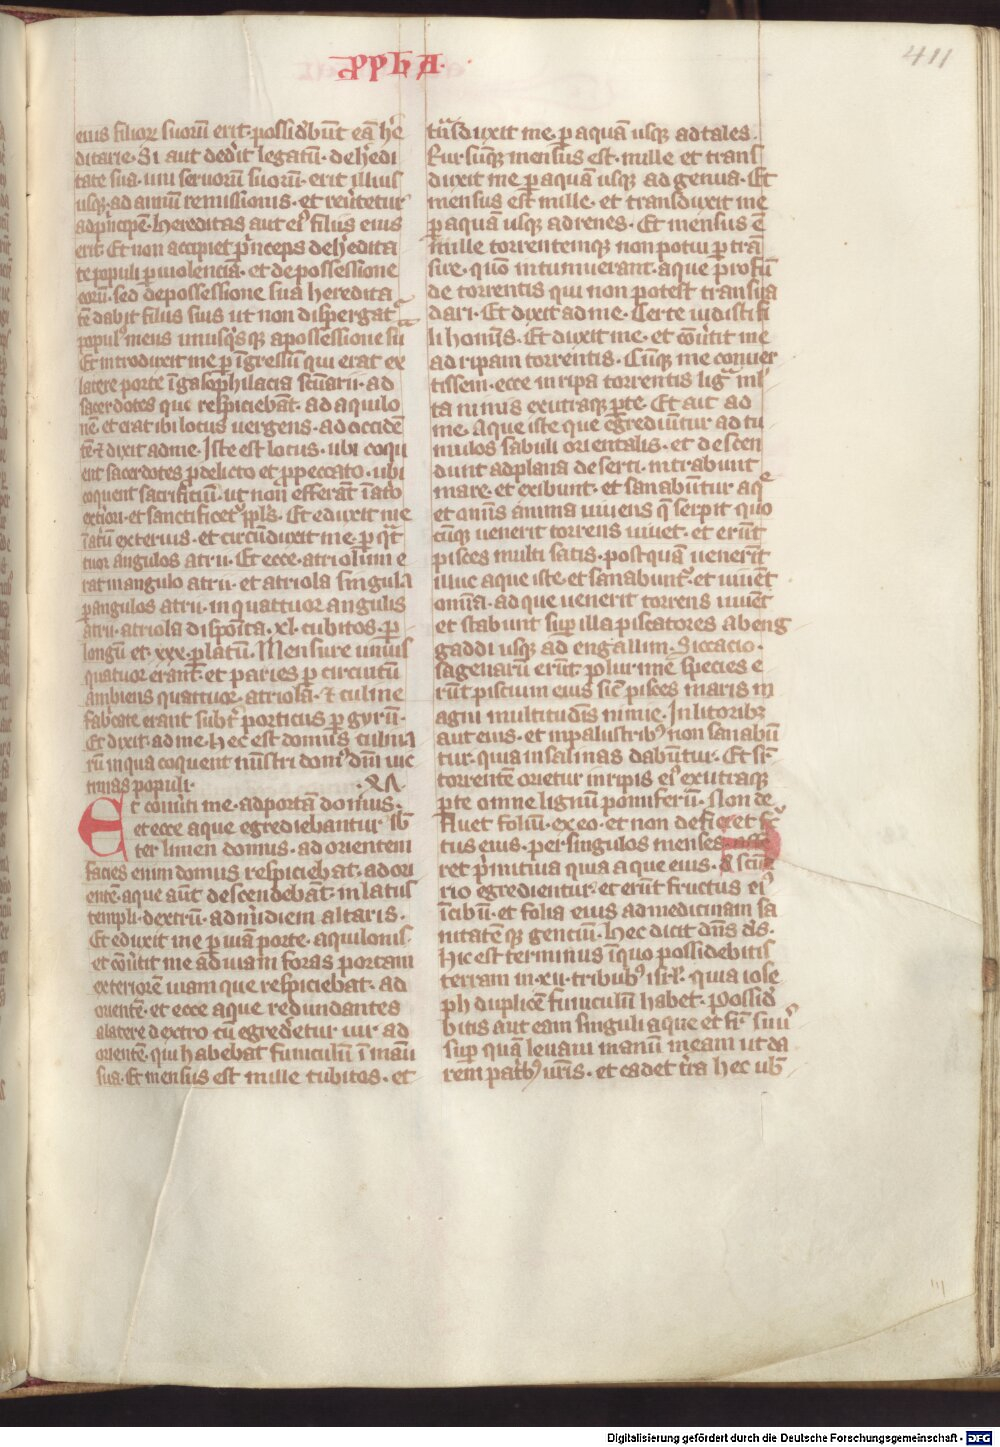 ꝓphA·
411
eius filioꝝ suoꝝ erit· possidebūt eā he
ditarie· Si aut dederit legatū· de hedi
tate sua· uni seruorū suorū· erit illius
usqꝫ ad annū remissionis· et reūtetur
ad pͥncipē· hereditas aut eiꝰ filiis eius
erit· Et non accipiet pͥnceps de heredita
te populi ꝑ uiolenciā· et de possessione
eorū· sed de possessione sua heredita
tē dabit filiis suis ut non dispergatᷣ
populꝰ meus unusqͥsqꝫ a possessione suā
Et introduxit me ꝑ īgressū qui erat ex
latere porte ī gasophilacia scͥuarii· ad
sacerdotes qui respiciebāt· ad aquilo
nē et erat ibi locus uergens· ad occidē
tē· ⁊ dixit ad me· Iste est locus· ubi coqu
ent sacerdotes ꝓ delicto et ꝓ peccato· ubi
coquent sacrificiū· ut non efferāt ī atͥo
extiori· et sanctificetᷣ ppl̄s· Et eduxit me
ī atͥū exterius· et circūduxit me ꝑ qͣt
tuor angulos atrii· Et ecce atriolum e
rat in angulo atrii· et atriola singula
ꝑ angulos atrii· in quattuor angulis
atrii· atriola disposita· xl· cubitos· ꝑ
longū et xxx· ꝑ latū· Mensure unius
quatuor erant· et paries ꝑ circuitū
ambiens quattuor atriola· ⁊ culine
fabͥcate erant subtͥ porticus ꝑ gyrū·
Et dixit ad me· hec est domus culina
rū in qua coquent mīstri domꝰ dn̄i uic
timas populi·
Et cōuͥti me· ad portā domus·
et ecce aque egrediebantur sb̄
ter limen domus· ad orientem
facies enim domus respiciebat· ad ori
entē· aque aūt descendebāt· in latus
templi· dextrū· ad mͥdiem altaris·
Et eduxit me ꝑ uiā porte· aquilonis·
et cōuͥtit me ad uiam foras portam
exteriorē uiam que respiciebat· ad
orientē· et ecce aque redundantes
a latere dextro cū egrederetur uir ad
orientē· qui habebat funiculū ī manu
sua· Et mensus est mille cubitos· et
tͣsduxit me ꝑ aquā usqꝫ ad tales·
Rursūqꝫ mensus est· mille et trans
duxit me ꝑ aquā usqꝫ ad genua· Et
mensus est mille· et transduxit me
ꝑ aquā usqꝫ ad renes· Et mensus ē
mille torrentemqꝫ non potui ꝑtrā
sire· qūo intumuerant· aque profū
de torrentis qui non potest transua
dari· Et dixit ad me· Certe uidisti fi
li homīs· Et duxit me· et cōuͥtit me
ad ripam torrentis· Cūqꝫ me conuer
tissem· ecce in ripa torrentis ligͣ ml̄
ta nimis ex utraqꝫ ꝑte· Et ait ad
me· Aque iste que egrediūtur ad tu
mulos sabuli orientalis· et descen
dunt ad plana deserti· intrabunt
mare· et exibunt· et sanabūtur aqᵉ
et omīs anima uiuens qͤ serpit quo
cūqꝫ uenerit torrens uiuet· et erūt
pisces multi satis· postquā uenerīt
illuc aque iste· et sanabuntᷣ· et uiuēt
omīa· ad que uenerit torrens uiuēt
et stabunt suꝑ illa piscatores ab eng
gaddi usqꝫ ad engallim· Siccacio·
sagenarū erūt· plurime species e
rūt piscium eius sic̄ pisces maris m
agni multitudīs nimie· In litoribꝫ
aut eius· et in palustribꝰ non sanabū
tur· quia in salinas dabūtur· Et suꝑ
torrentē orietur in ripis eiꝰ ex utraqꝫ
ꝑte omne lignum pomiferū· Non de
fluet foliū· ex eo· et non deficiet frͨ
tus eius· per singulos menses affe
ret pͥmitiua quia aque eius· de scūa
rio egredientur· et erūt fructus eiꝰ
ī cibū· et folia eius ad medicinam sa
nitatēqꝫ gentiū· hec dicit dn̄s ds̄·
Hic est terminus ī quo possidebitis
terram in xii· tribubꝰ isrl̄· quia iose
ph duplicē funiculū habet· possid
bitis aut eam singuli aque ut fr̄ suū
suꝑ quā leuaui manū meam ut da
rem patͥbꝰ uris̄· et cadet tͥra hec ub̄
Digitalisierung gefördert durch die Deutsche Forschungsgemeinschaft - DFG